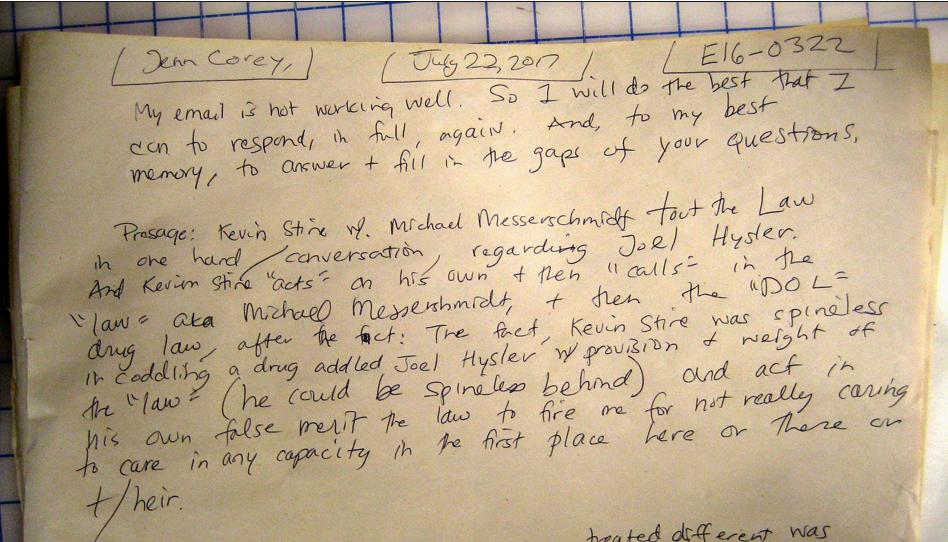 Jenn Corey, July 22, 2017 E16-0322
My email is not working well. So I will do the best that I
can to respond, in full, again. And, to my best
memory, to answer + fill in the gaps of your questions.
Presage: Kevin Stire w/. Michael Messerschmidt tout the Law
in one hand / conversation, regarding Joel Hysler.
And Kevin Stire "acts" on his own + then "calls" in the
"law" aka Michael Messershmidt, + then the "DOL"
drug law, after the fact: The fact, Kevin Stire was spineless
in coddling a drug addled Joel Hysler w/ provision + weight of
the "law" (he could be spineless behind) and act in
his own false merit the law to fire me for not really caring
to care in any capacity in the first place here or there or
t/heir.
treated different was